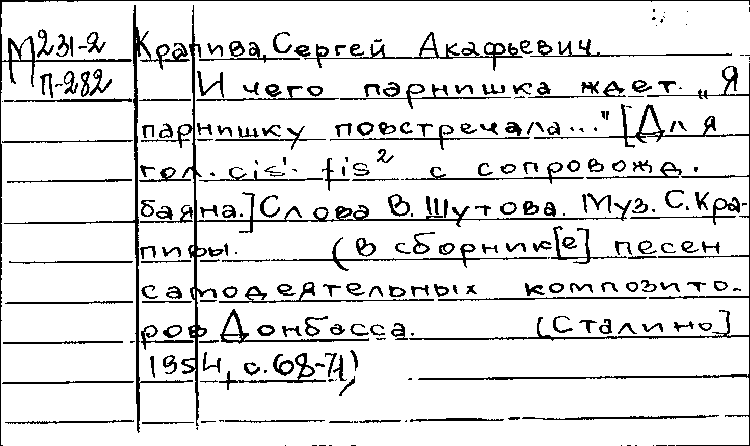 М 231-2 Крапива, Сергей Акафьевич.
П-282 И чего парнишка ждет. „Я
парнишку повстречала..." [Для
гол. cis'. fis² с сопровожд.
баяна.] Слова В. Шутова. Муз. С. Кра-
пивы. (В сборник[е] песен
самодеятельных композито-
ров Донбасса. [Сталино]
1954, с. 68-71)